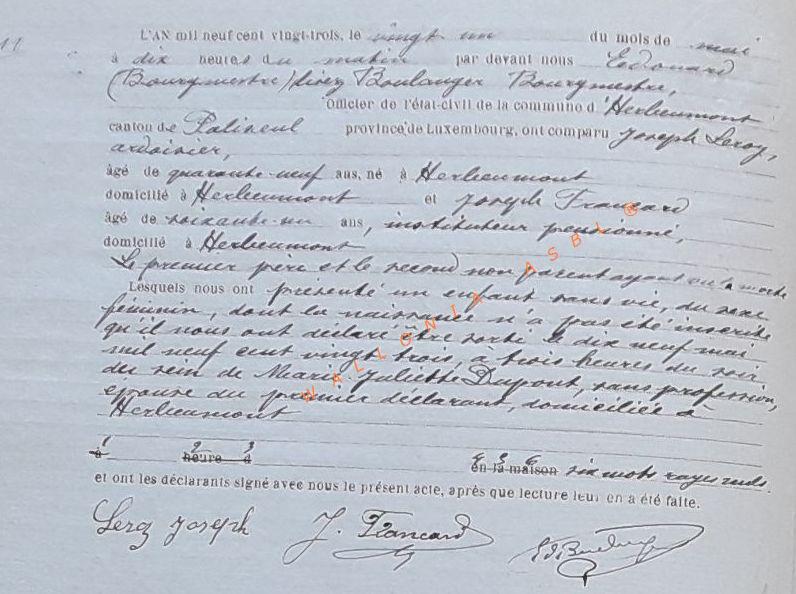 11
L'AN mil neuf cent vingt-trois, le vingt un du mois de mai
à dix heures du matin par devant nous Edouard
(Bourgmestre) Boulanger Bourgmestre,
Officier de l'état-civil de la commune d'Herbeumont
canton de Paliseul province de Luxembourg, ont comparu Joseph Leroy,
ardoisier,
âgé de quarante-neuf ans, né à Herbeumont
domicilié à Herbeumont et Joseph Francard
âgé de soixante-un ans, instituteur pensionné,
domicilié à Herbeumont
Le premier père et le second non parent ayant
Lesquels nous ont présenté un enfant sans vie, du sexe
féminin, dont la naissance n'a pas été inscrite
qu'il nous ont déclaré être sorti le dix neuf mai
mil neuf cent vingt trois, à trois heures du soir
du sein de Marie Juliette Dupont, sans profession,
épouse du premier déclarant, domiciliée à
Herbeumont
1 2 3 4 5 6
à heure à en la maison six mots rayés nuls.
et ont les déclarants signé avec nous le présent acte, après que lecture leur en a été faite.
Leroy Joseph J. Francard Ed Boulanger
WALLONIA ASBL ®